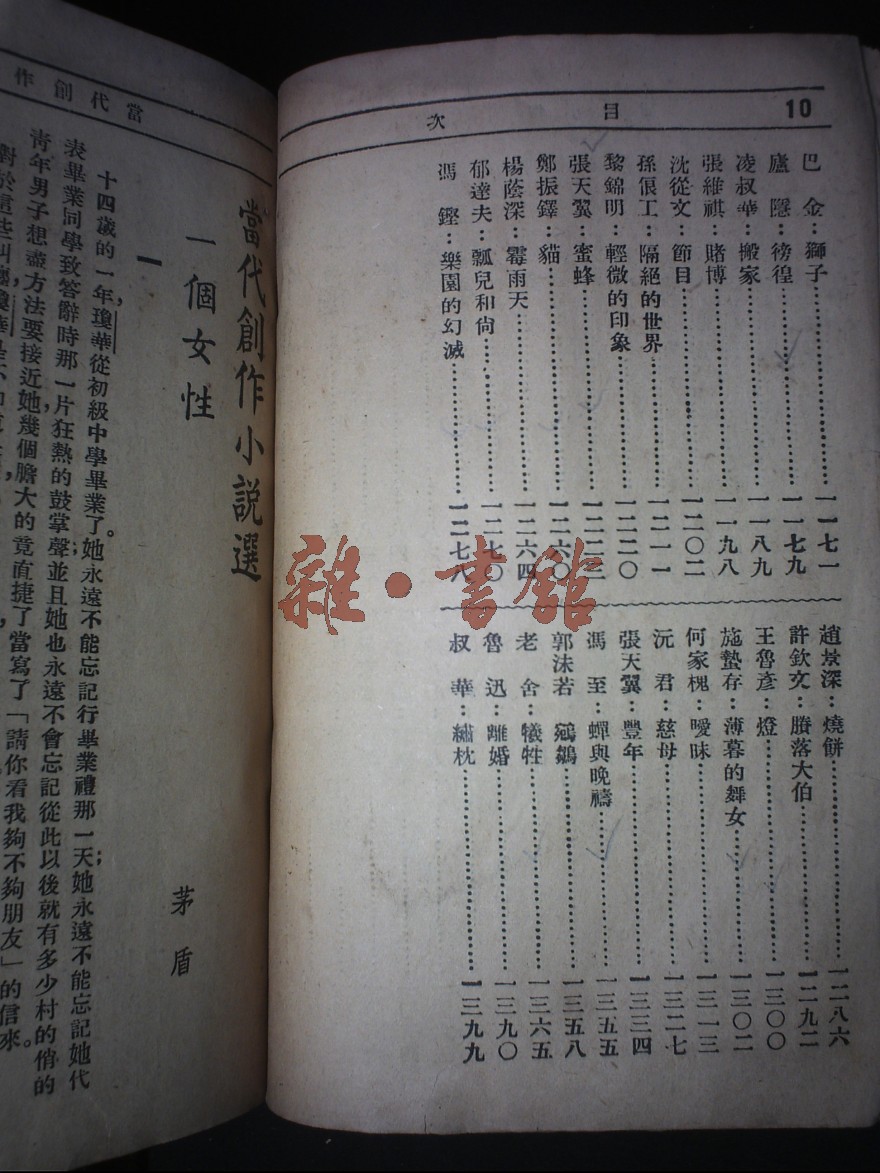 10
目次
巴金：獅子 一一七一
廬隱：徬徨 一一七九
凌叔華：搬家 一一八九
張維祺：賭博 一一九八
沈從文：節目 一二〇二
孫俍工：隔絕的世界 一二一一
黎錦明：輕微的印象 一二二〇
張天翼：蜜蜂
鄭振鐸：貓 一二六〇
楊蔭深：霉雨天 一二六四
郁達夫：瓢兒和尙 一二七〇
馮鏗：樂園的幻滅 一二七八
趙景深：燒餅 一二八六
許欽文：賸落大伯 一二九二
王魯彥：燈 一三〇〇
施蟄存：薄暮的舞女 一三〇二
何家槐：曖昧 一三一三
沅君：慈母 一三二七
張天翼：豐年 一三三四
馮至：蟬與晚禱 一三五五
郭沫若：鵷鶵 一三五八
老舍：犧牲 一三六五
魯迅：離婚 一三九〇
叔華：繡枕 一三九九
當代創作
當代創作小説選
一個女性
茅盾
一
十四歲的一年，瓊華從初級中學畢業了。她永遠不能忘記行畢業禮那一天；她永遠不能忘記她代
表畢業同學致答辭時那一片狂熱的鼓掌聲；並且她也永遠不會忘記從此以後就有多少村的俏的
靑年男子想盡方法要接近她，幾個膽大的竟直捷了當寫了「請你看我夠不夠朋友」的信來。
對於這些糾纏，瓊華是
雜·書館